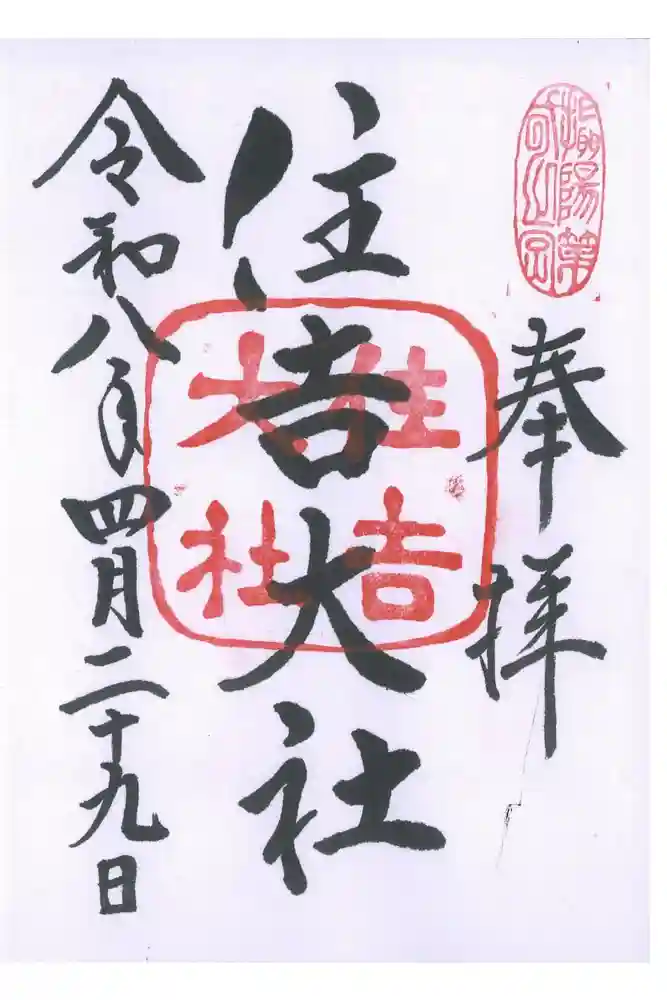 奉拝
住吉大社
住吉
大社
令和八年四月二十九日